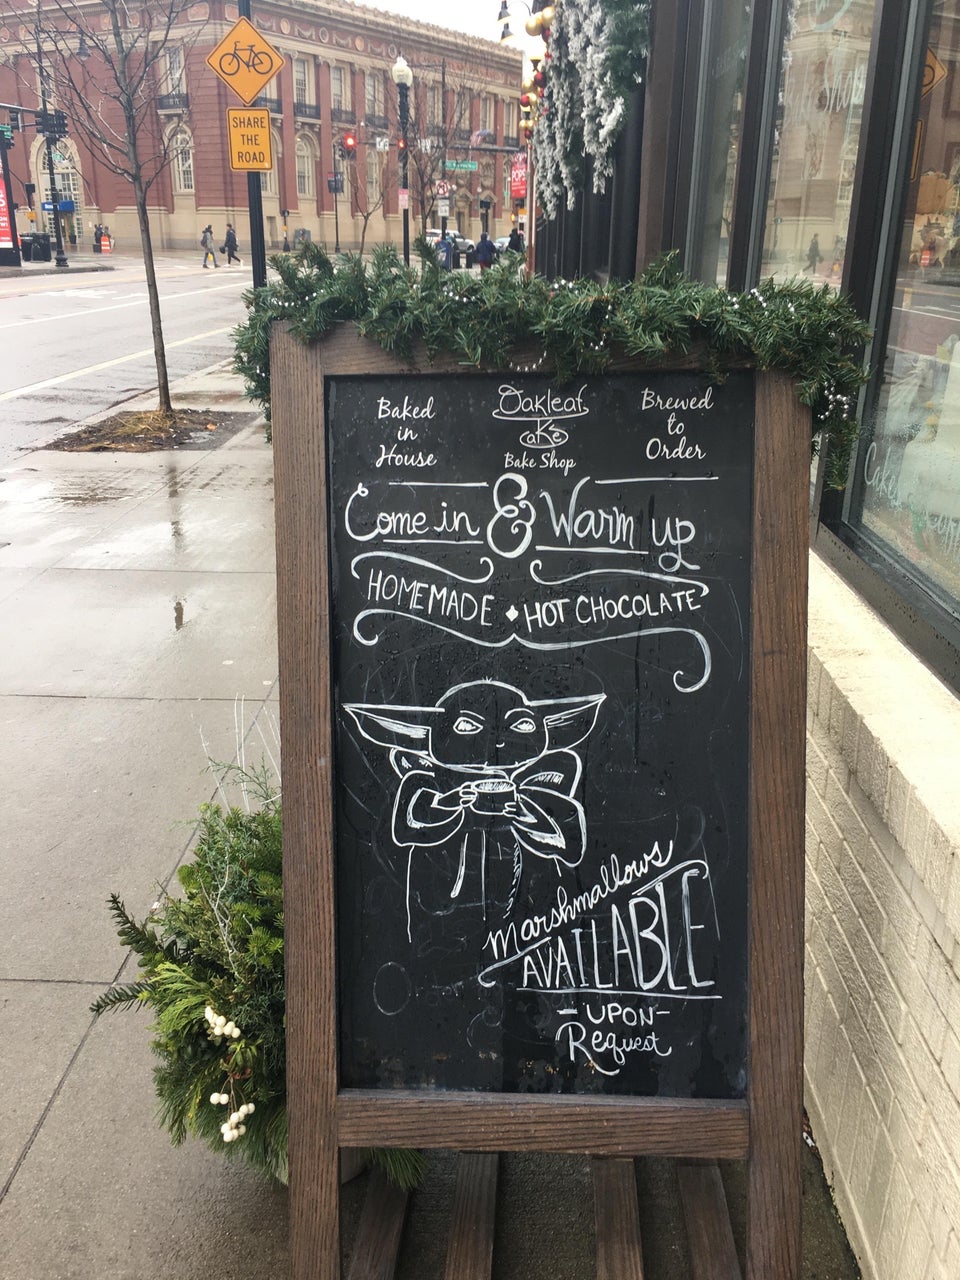 SHARE
THE
ROAD
POPS
Baked
in
House
Oakleaf
Cakes
Bake Shop
Brewed
to
Order
Come in & Warm up
HOMEMADE ♦ HOT CHOCOLATE
Marshmallows
AVAILABLE
-UPON-
Request